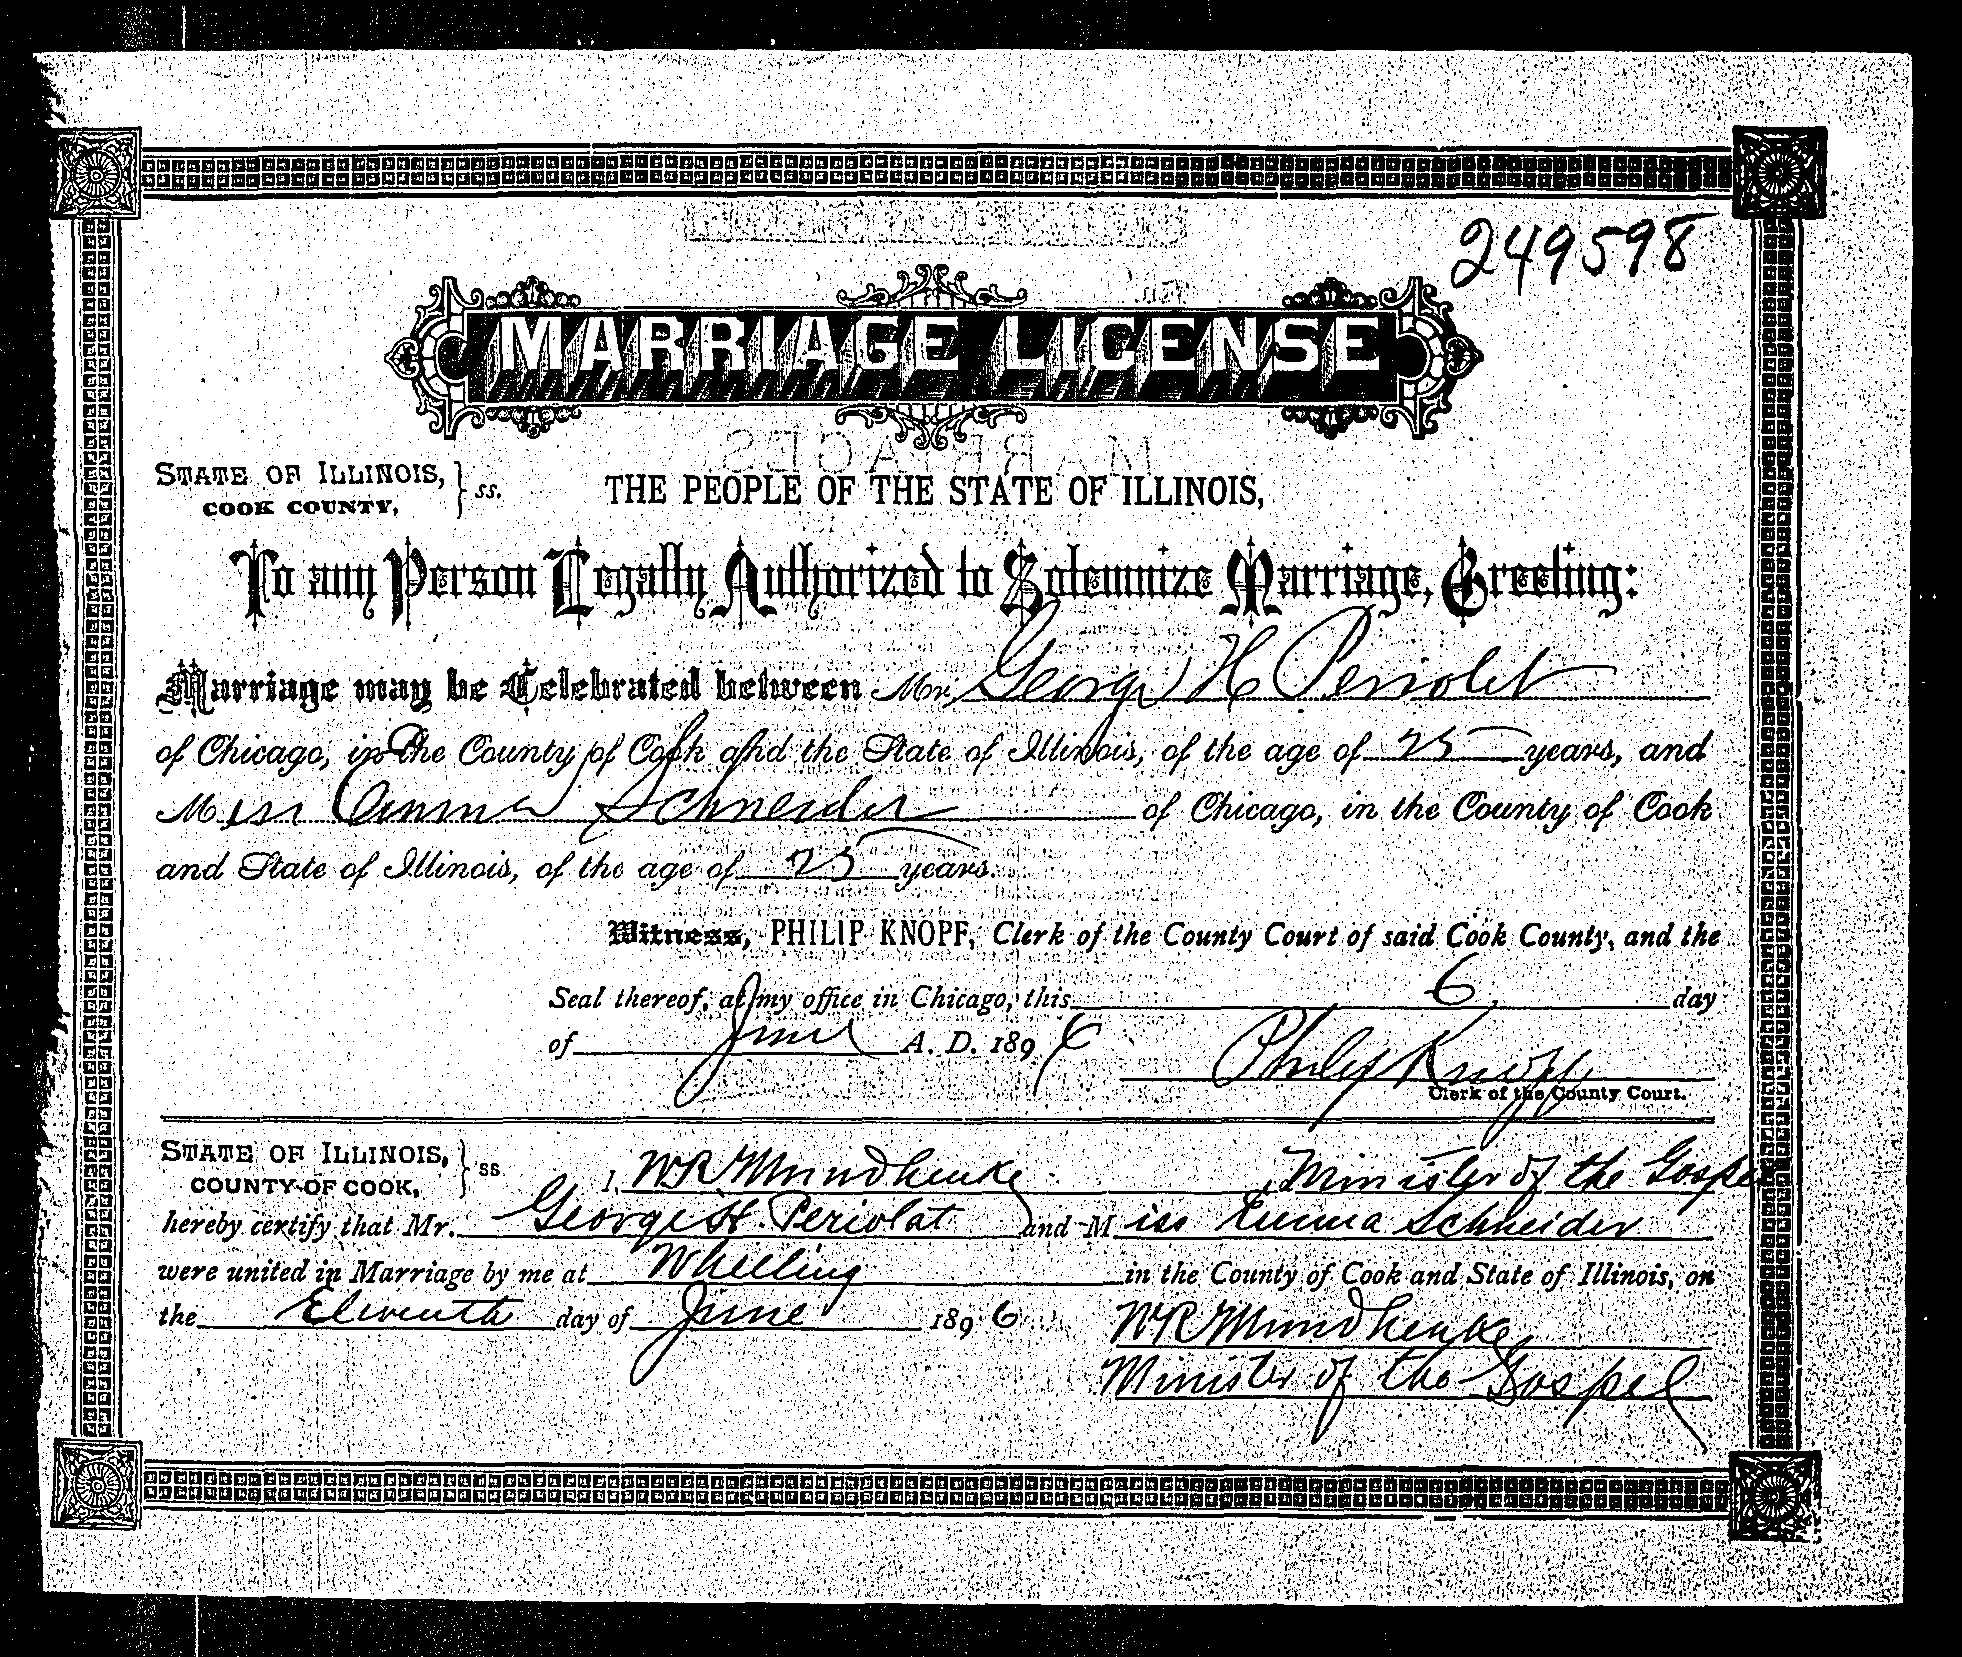 249598
MARRIAGE LICENSE
STATE OF ILLINOIS, } ss.
COOK COUNTY,
THE PEOPLE OF THE STATE OF ILLINOIS,
To any Person Legally Authorized to Solemnize Marriage, Greeting:
Marriage may be Celebrated between Mr. George H Periolet
of Chicago, in the County of Cook and the State of Illinois, of the age of 25 years, and
Miss Emma Schneider of Chicago, in the County of Cook
and State of Illinois, of the age of 25 years.
Witness, PHILIP KNOPF, Clerk of the County Court of said Cook County, and the
Seal thereof, at my office in Chicago, this 6 day
of June A. D. 1896
Philip Knopf
Clerk of the County Court.
STATE OF ILLINOIS, } ss
COUNTY OF COOK,
I, WR Mundhenke, Minister of the Gospel
hereby certify that Mr. George H. Periolat and Miss Emma Schneider
were united in Marriage by me at Wheeling in the County of Cook and State of Illinois, on
the Eleventh day of June 1896
WR Mundhenke
Minister of the Gospel